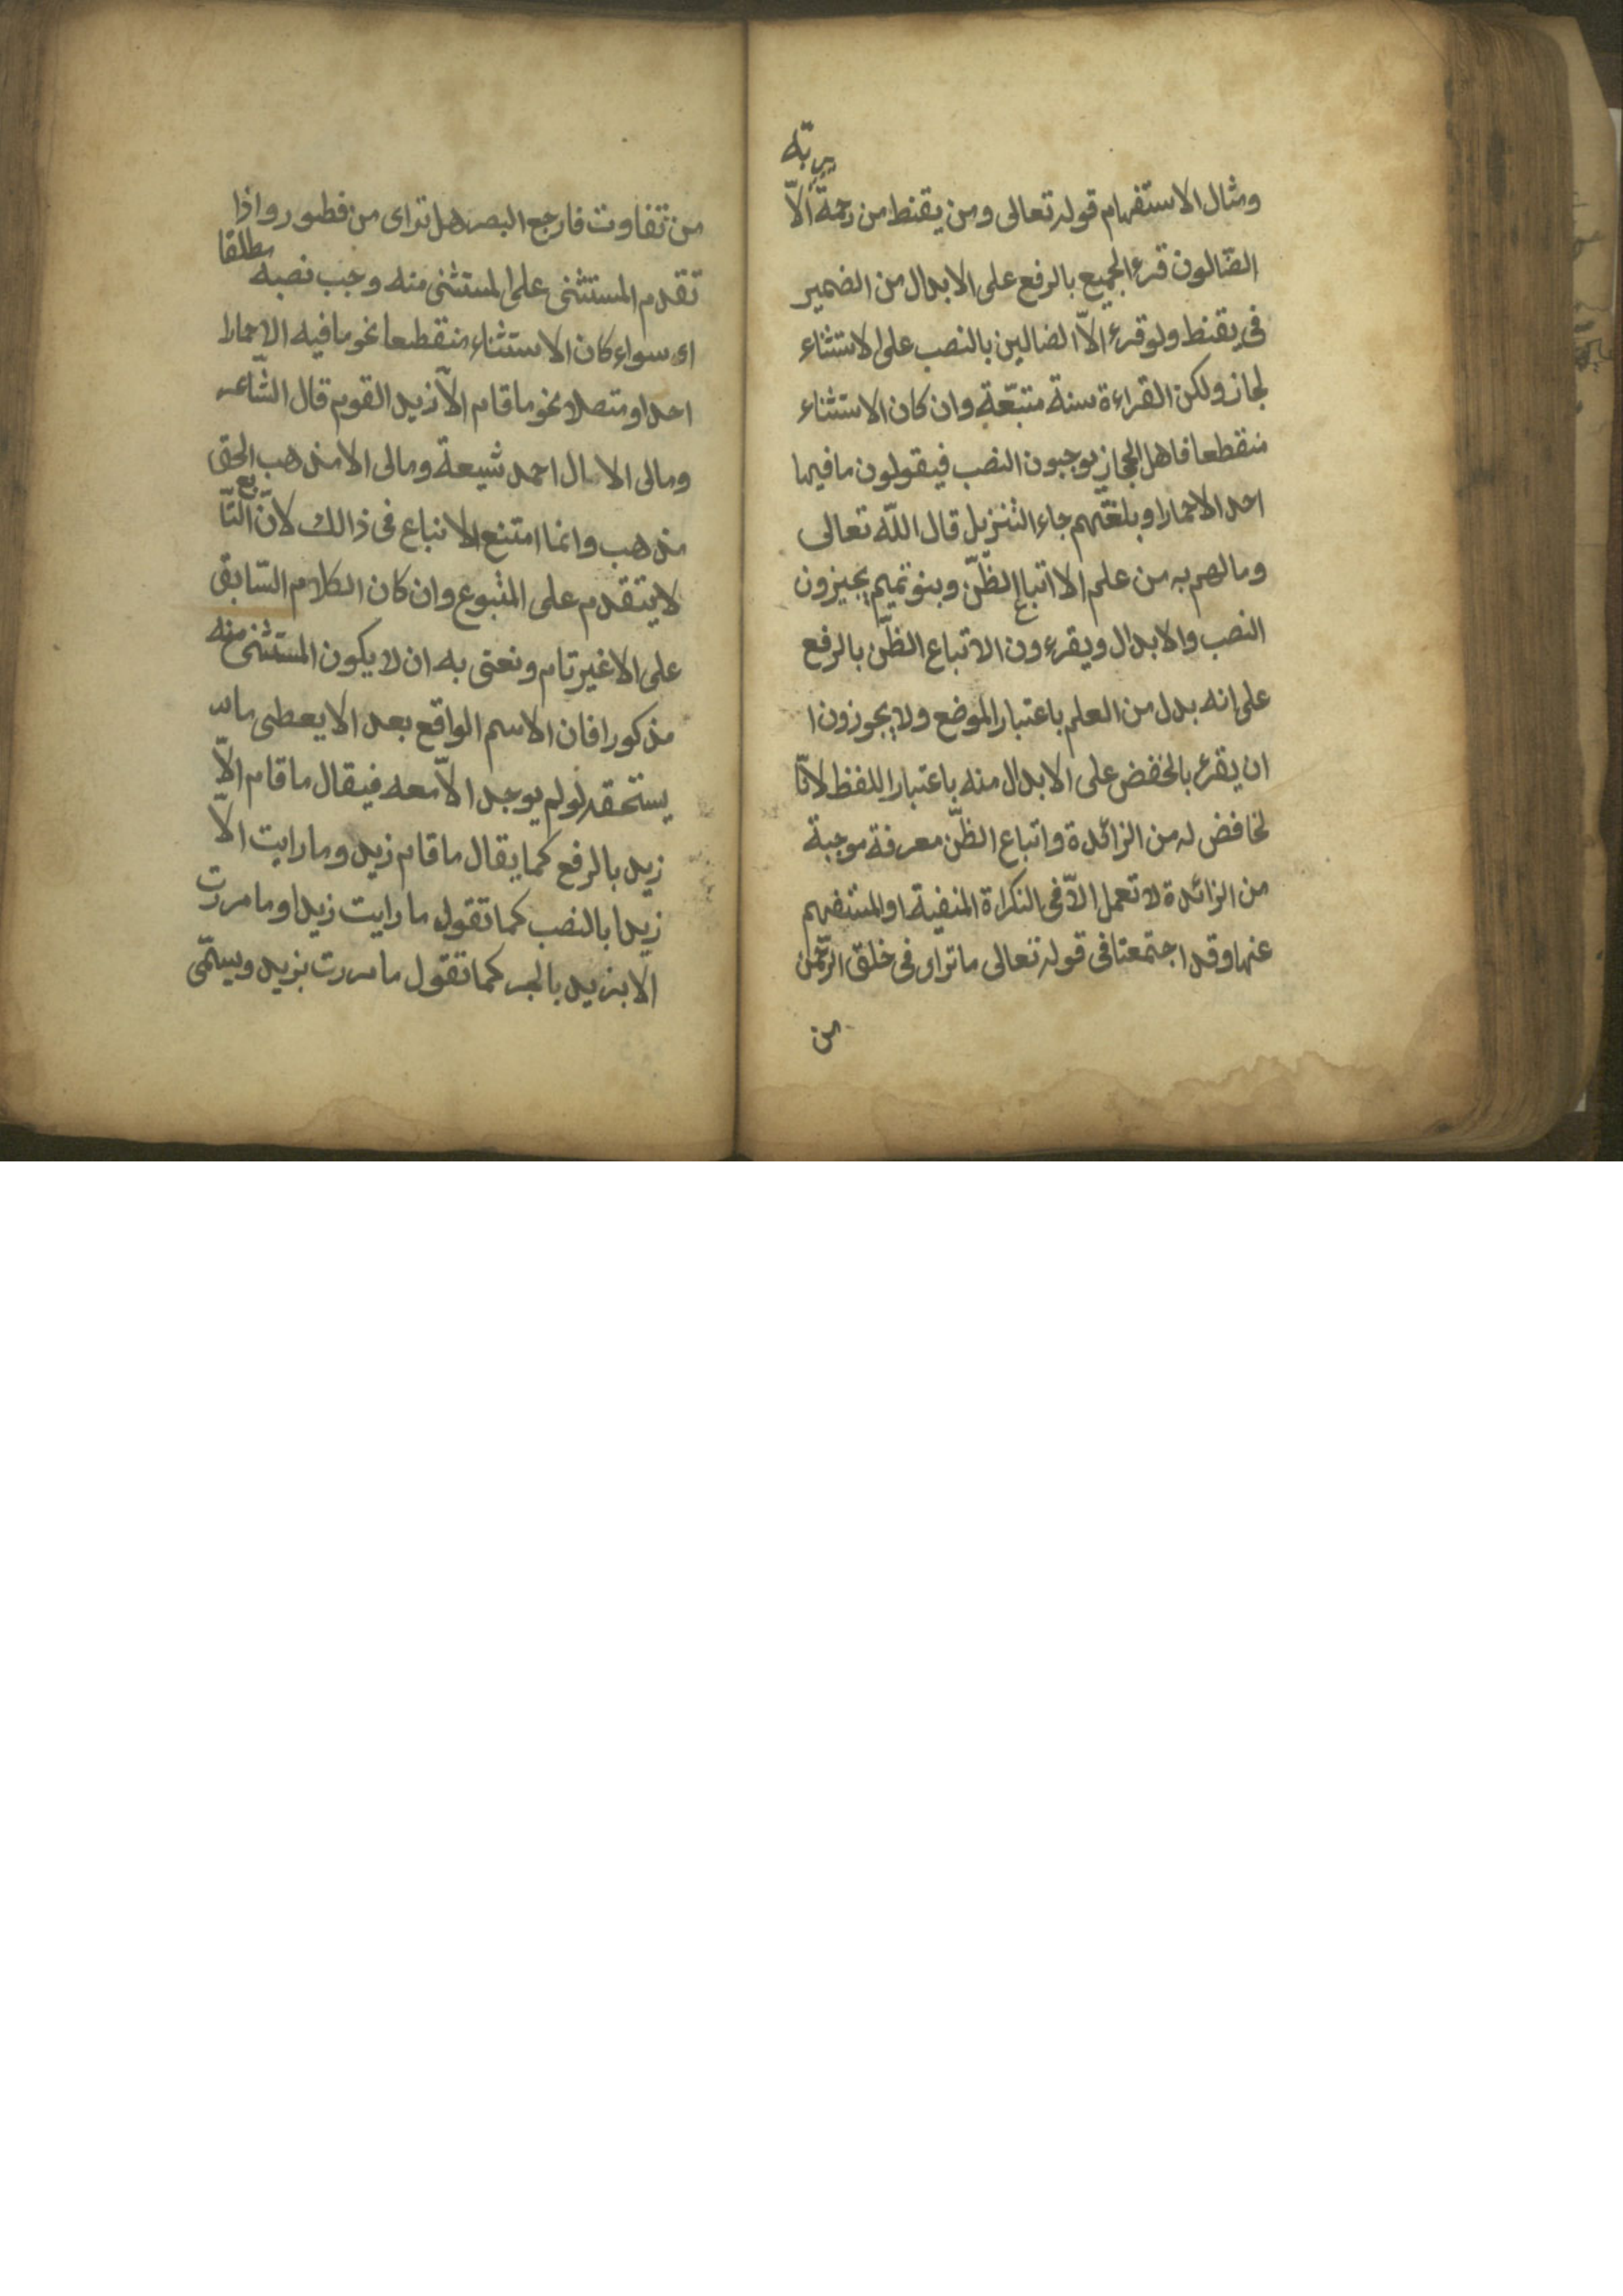 ربه
ومثال الاستفهام قوله تعالى ومن يقنط من رحمة الّا
الضّالون قرء الجميع بالرفع على الابدال من الضمير
فى يقنط ولو قرء الّا الضالين بالنصب على الاستثناء
لجاز ولكن القراءة سنة متبّعة وان كان الاستثناء
منقطعا فاهل الحجاز يوجبون النصب فيقولون ما فيها
احد الا حمارا وبلغتهم جاء التنزيل قال اللّه تعالى
وما لهم به من علم الا اتباع الظنّ وبنو تميم يجيزون
النصب والابدال ويقرءون الا تباع الظنّ بالرفع
على انه بدل من العلم باعتبار الموضع ولا يجوزون ا
ان يقرء بالخفض على الابدال منه باعتبار اللفظ لانّا
لخافض له من الزائدة واتباع الظنّ معرفة موجبة
من الزائدة لا تعمل الّا فى النكراة المنفية او المستفهم
عنها وقد اجتمعتا فى قوله تعالى ما تراى فى خلق الرحمن
من
من تفاوت فارجع البصر هل تراى من فطور واذا
تقدم المستثنى على المستثنى منه وجب نصبه مطلقا
اى سواء كان الاستثناء منقطعا نحو ما فيه الا حمارا
احد او متصلا نحو ما قام الّا زيد القوم قال الشّاعر
ومالى الا ال احمد شيعة ومالى الا مذهب الحق
مذهب وانما امتنع الاتباع فى ذالك لانّ التّابع
لا يتقدم على المتبوع وان كان الكلام السّابق
على الا غير تام ونعنى به ان لا يكون المستثنى منه
مذكورا فان الاسم الواقع بعد الا يعطى ما
يستحقه لو لم يوجد الّا معه فيقال ما قام الّا
زيد بالرفع كما يقال ما قام زيد وما رايت الّا
زيدا بالنصب كما تقول ما رايت زيدا وما مررت
الا بزيد بالجر كما تقول ما مررت بزيد ويسمّى